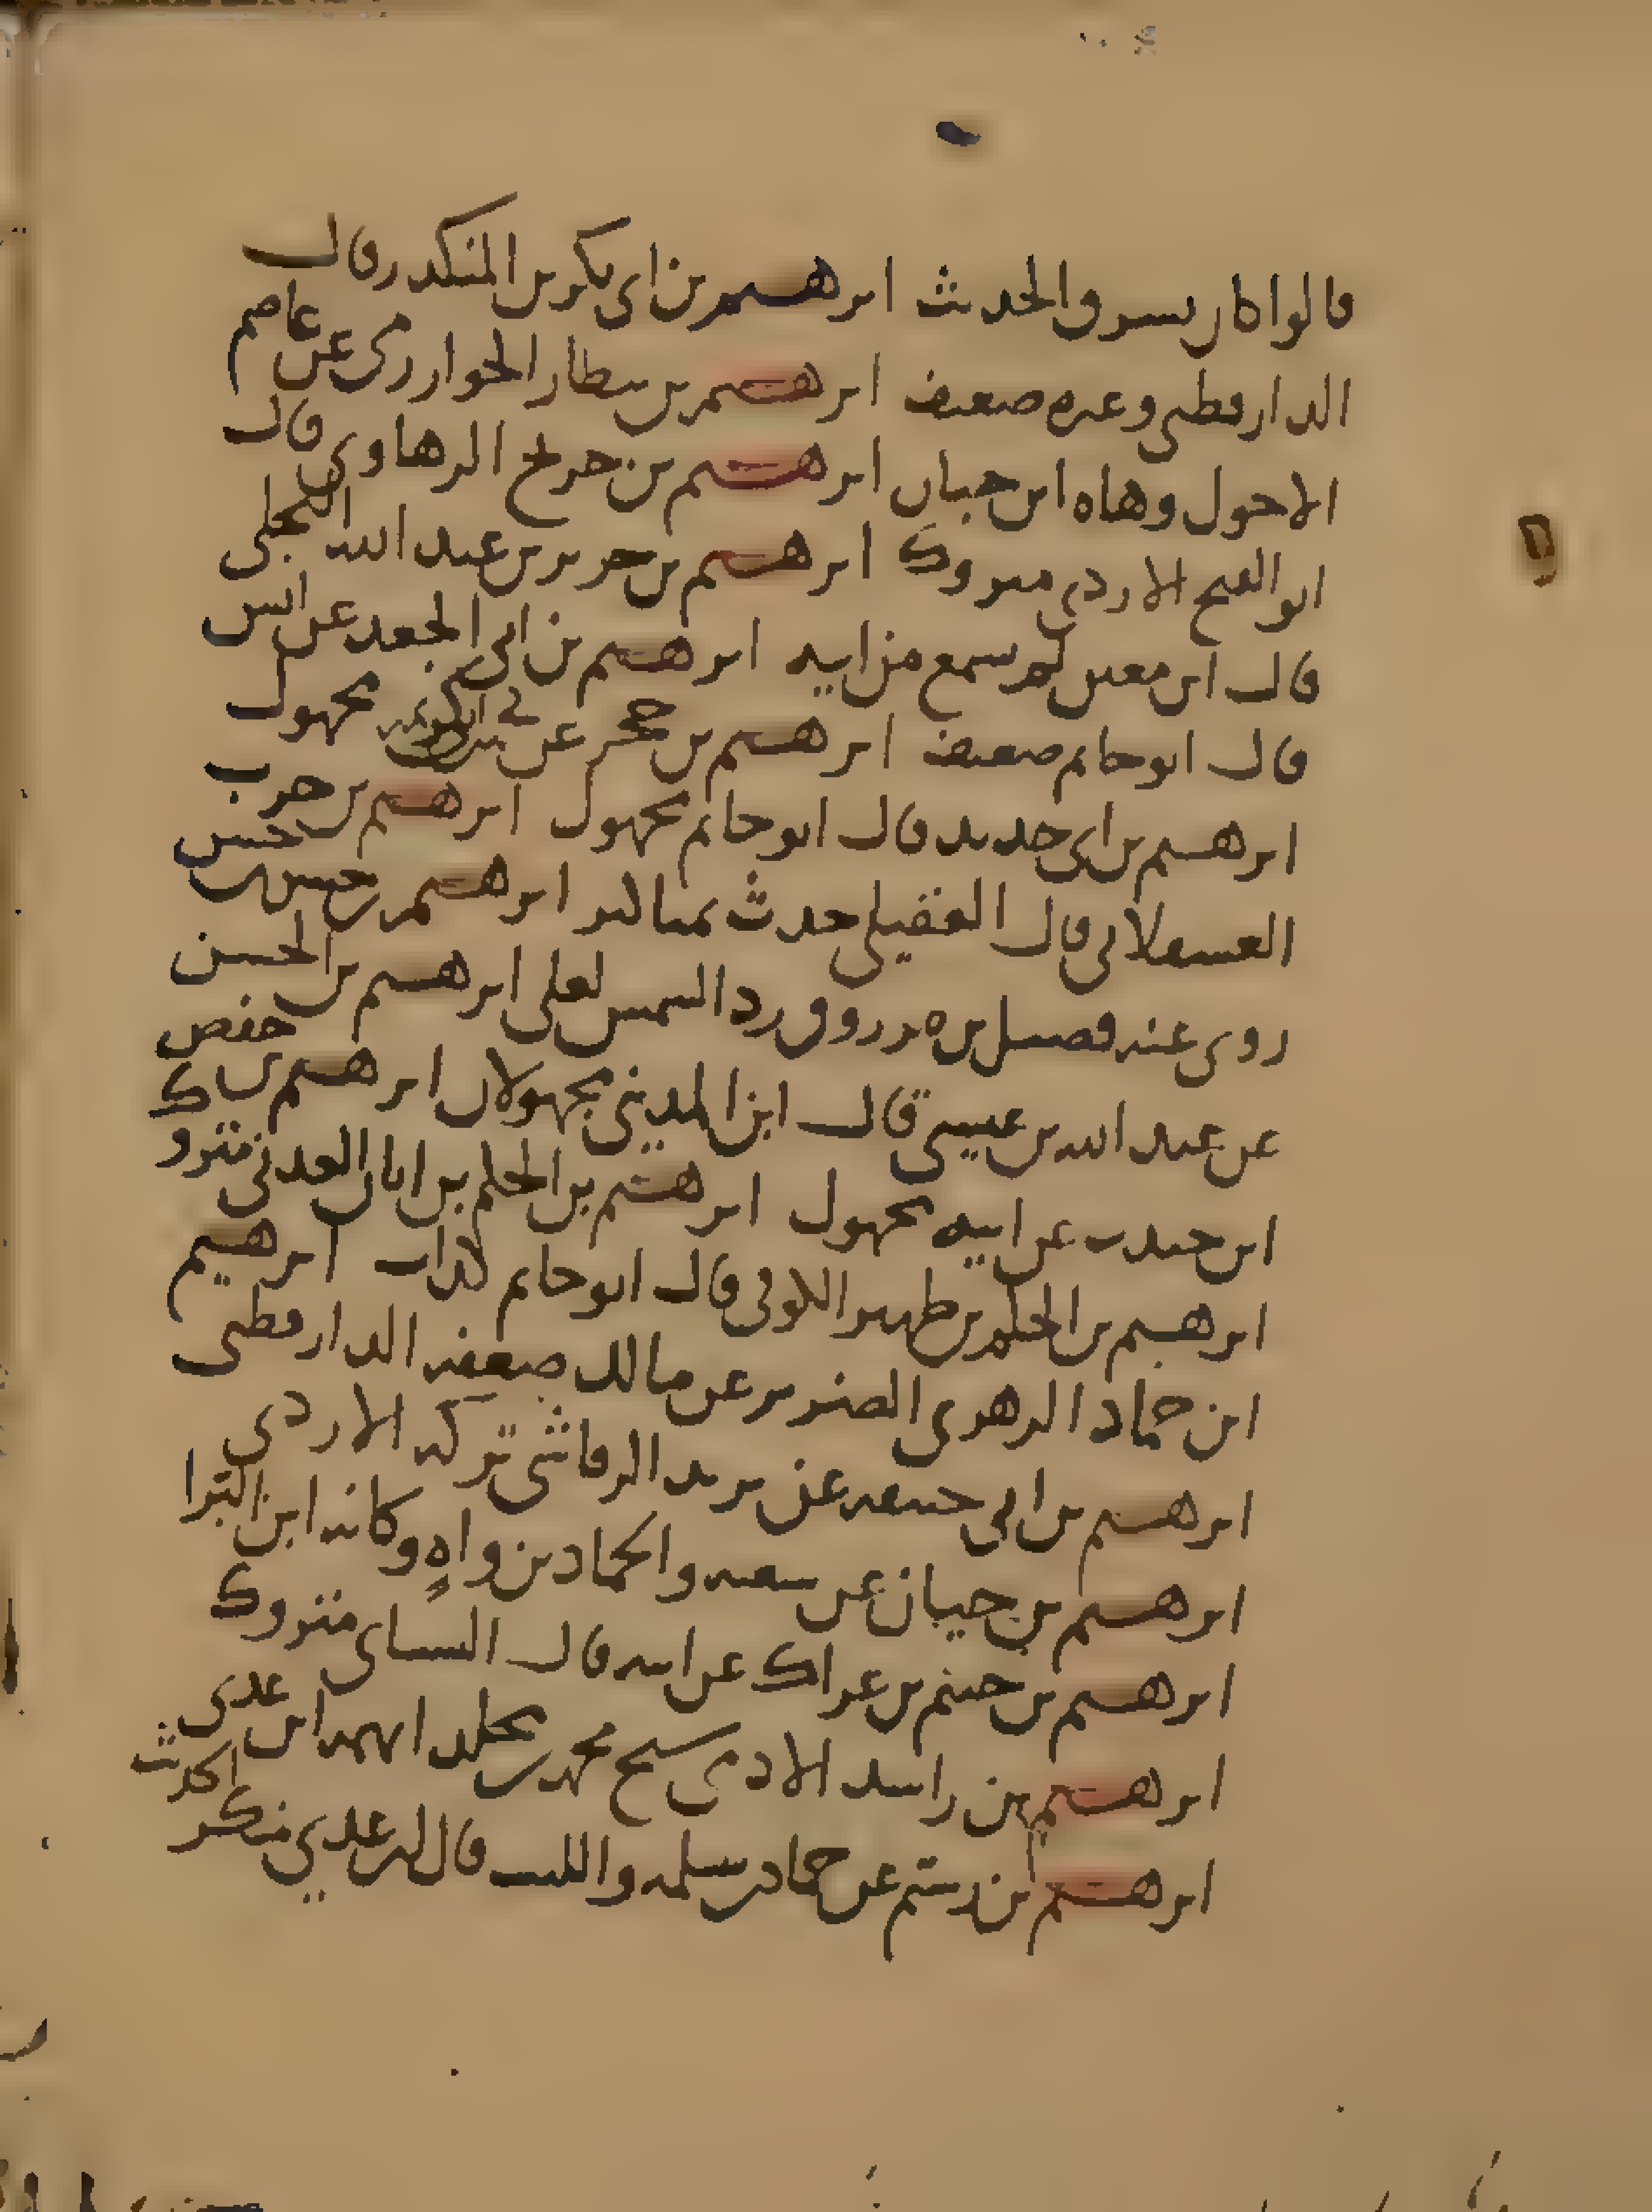 قالوا كان يسرق الحديث ابرهيم بن ابى بكر بن المنكدر قال
الدارقطنى وغيره ضعيف ابرهيم بن بيطار الخوارزمى عن عاصم
الاحول وهاه ابن حبان ابرهيم بن جريج الرهاوى قال
ابو الفتح الازدى متروك ابرهيم بن جرير بن عبد الله البجلى
قال ابن معين لم يسمع من ابيه ابرهيم بن ابى الجعد عن انس
قال ابو حاتم ضعيف ابرهيم بن حجر عن مجهول
ابرهيم بن ابى حديد قال ابو حاتم مجهول ابرهيم بن حرب
العسقلانى قال العقيلى حدث بمناكير ابرهيم بن حسن بن حسن
روى عنه فضيل بن مرزوق رد الشمس لعلى ابرهيم بن الحسن
عن عبد الله بن عيسى قال ابن المدينى مجهولان ابرهيم بن حفص
ابن جندب عن ابيه مجهول ابرهيم بن الحكم بن ابان العدنى متروك
ابرهيم بن الحكم بن ظهير الكوفى قال ابو حاتم كذاب ابرهيم
ابن حماد الزهرى الضرير عن مالك ضعفه الدارقطنى
ابرهيم بن ابى حنيفه عن يزيد الرقاشى تركه الازدى
ابرهيم بن حيان عن شعبه والحمادين واهٍ وكانه ابن البرا
ابرهيم بن خثيم بن عراك عن ابيه قال النسائى متروك
ابرهيم بن راشد الادمى شيخ محمد بن مخلد اتهمه ابن عدى
ابرهيم بن رستم عن حماد بن سلمه والليث قال ابن عدي منكر الحديث